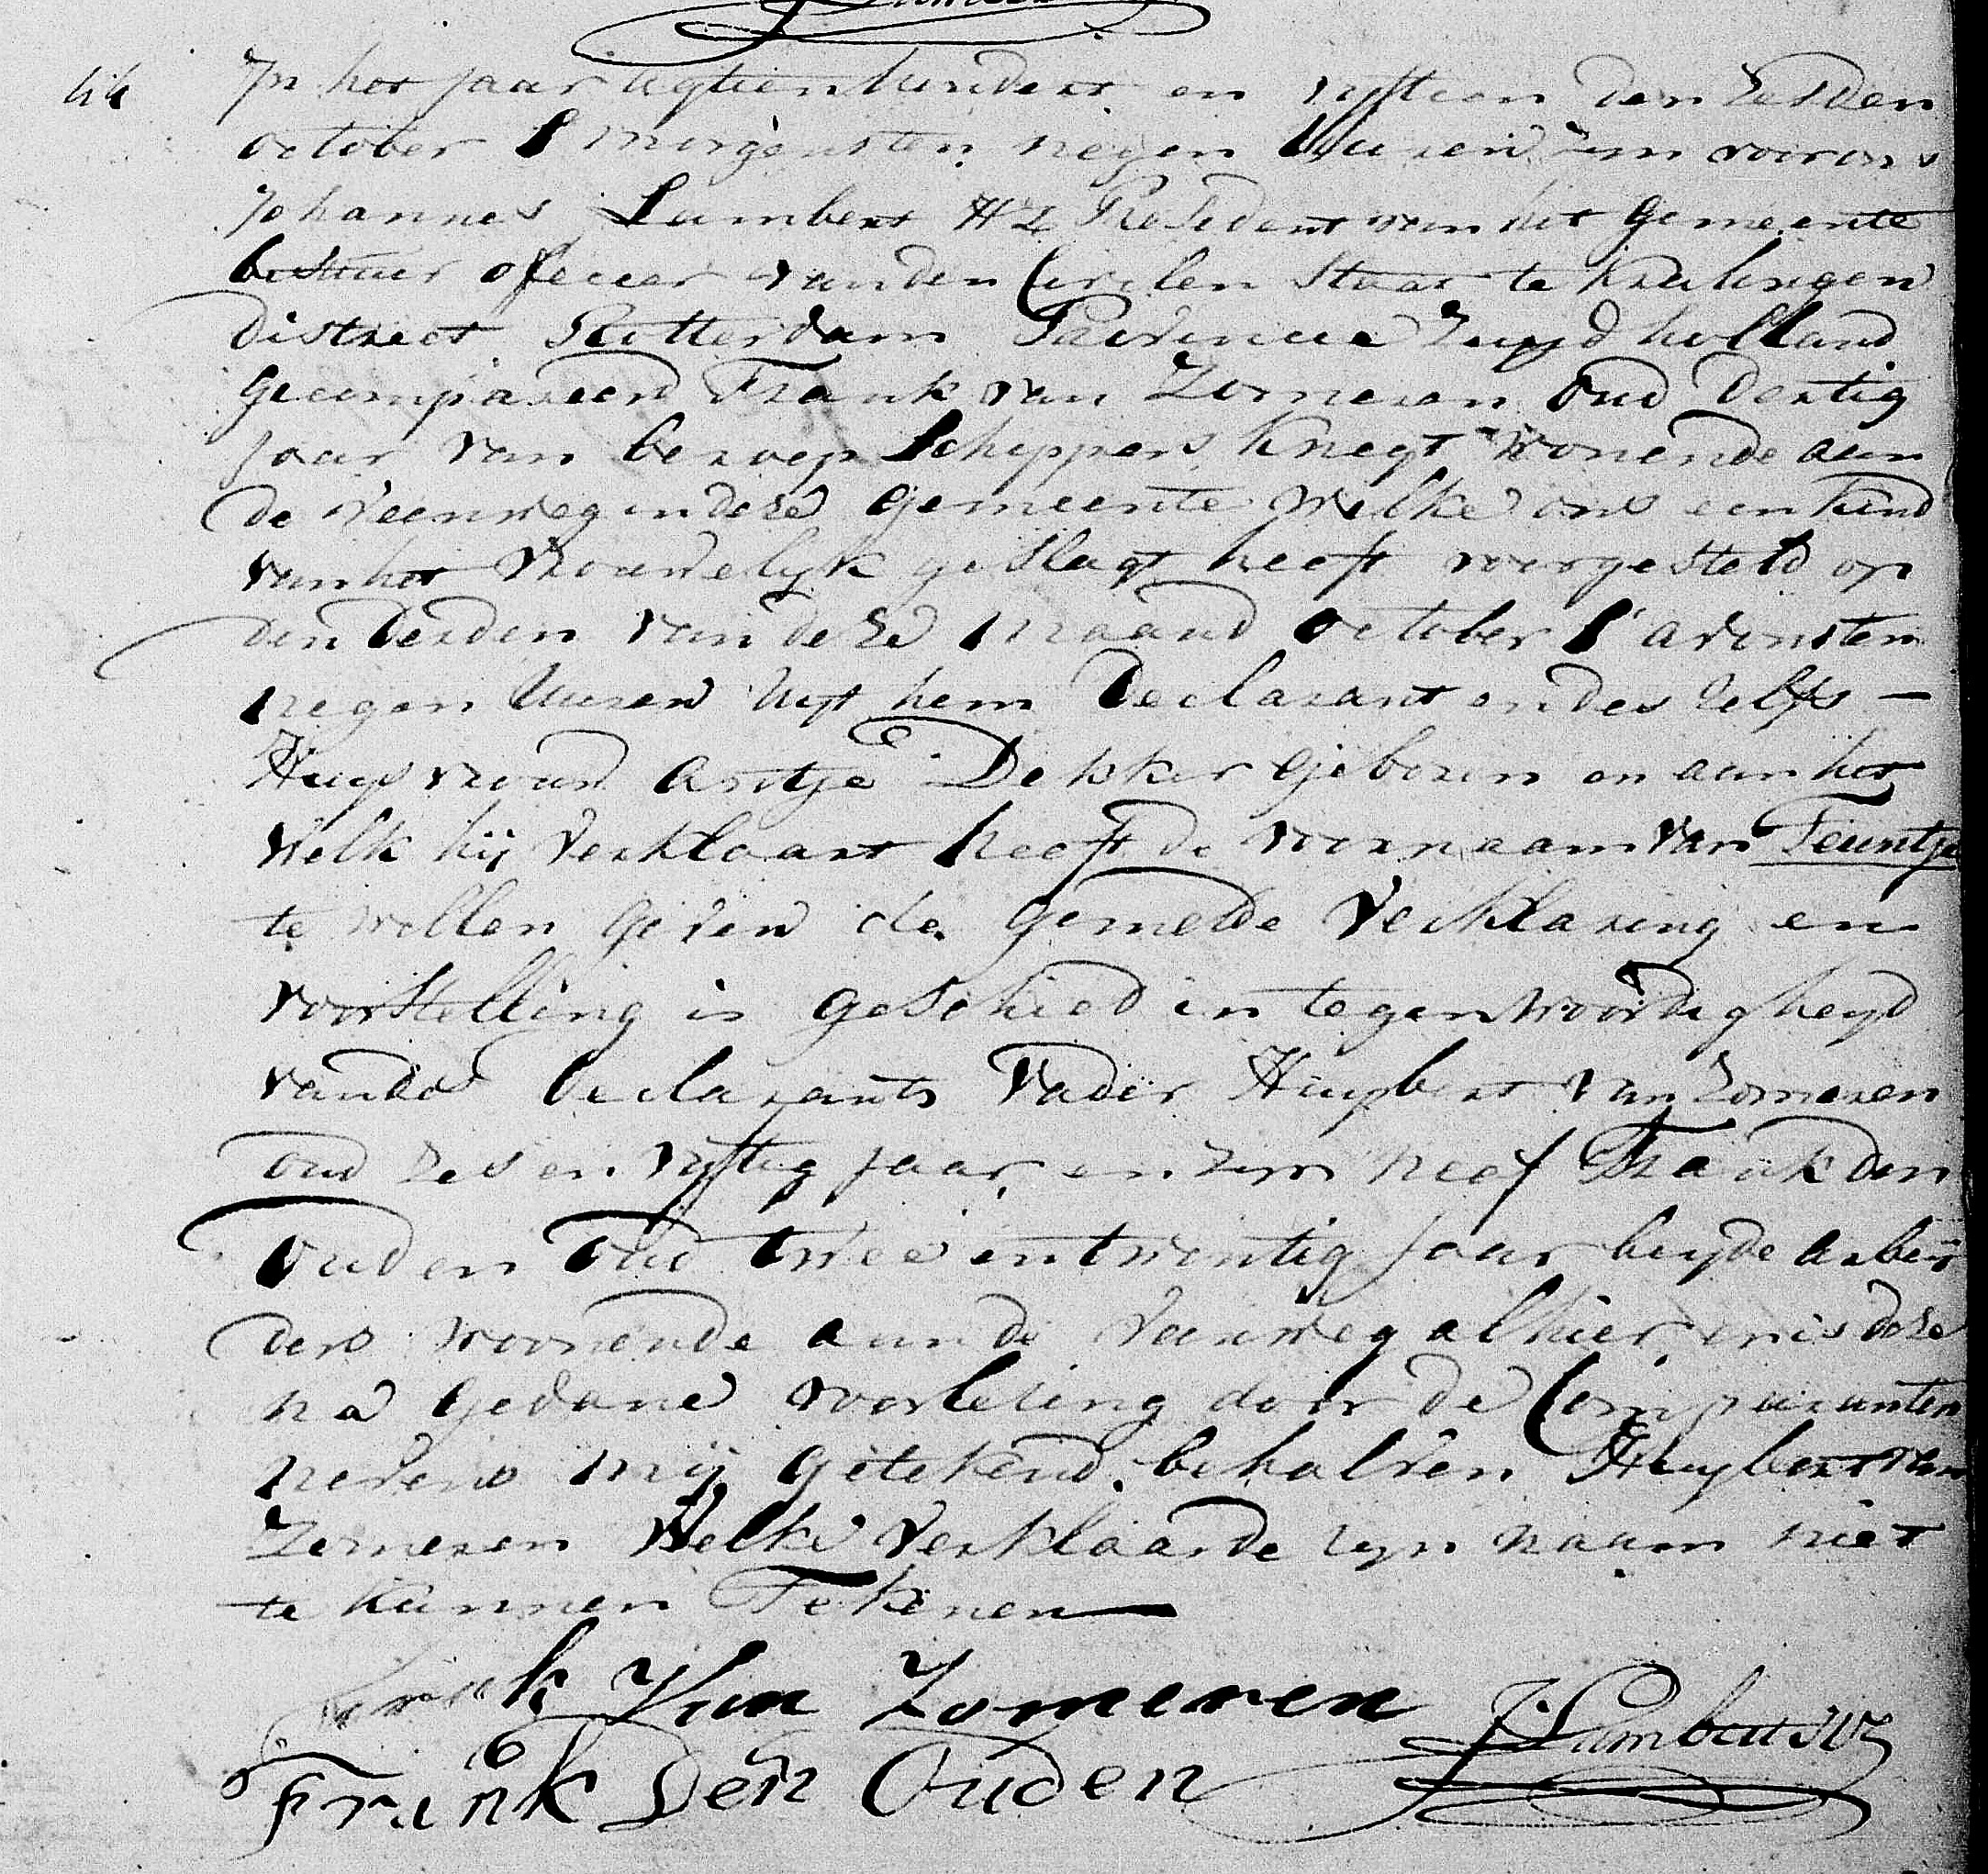 44
In het Jaar Agtien hundert en vyftien den Zesden
october S morgensten negen Uuren Zyn voor ons
Johannes Lambert HZ President van het Gemeente
bestuur oficeer van den Civilen Staat te Kralingen
district Rotterdam Provincie Zuyd holland
gecompareerd Frank van Zomeren Oud Dertig
Jaar van beroep Schippers Knegt wonende aan
de Veenweg in deze Gemeente Welke ons een kind
van het Vrouwelyk geslagt heeft voorgesteld op
den derden van deze maand October S avonsten
negen Uuren Uyt hem Declarant en des zelfs —
Huysvrouw Antje Dekker Geboren en aan het
Welk hij Verklaart heeft de voornaam van Teuntje
te willen Geven de Gemelde Verklaring en
voorstelling is Geschied in tegenwoordigheyd
van des declarants Vader Huybert van Zomeren
oud Zes en vyftig Jaar en Zyn neef Frank den
Ouden Oud twee en twentig Jaar beyde Arbeij
ders woonende aan de Veenweg alhier en is deze
na Gedane voorlesing door de Comparanten
nevens mij Getekend behalven Huybert van
Zomeren Welke Verklaarde zyn naam niet
te kunnen Tekenen —
Frank Van Zomeren
J Lambert HZ
Frank Den Ouden